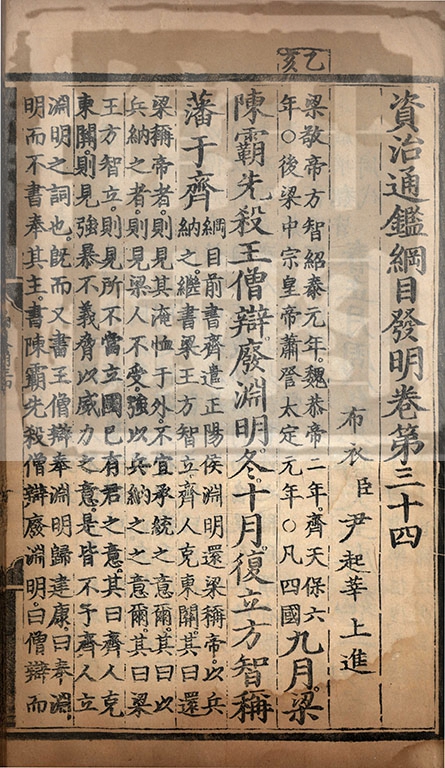 乙亥
資治通鑑綱目發明卷第三十四
布衣臣尹起莘上進
梁敬帝方智紹泰元年。魏恭帝二年。齊天保六
年〇後梁中宗皇帝蕭詧太定元年〇凡四國
九月。梁
陳霸先殺王僧辯。廢淵明。冬。十月。復立方智稱
藩于齊
綱目前書齊遣正陽侯淵明還梁稱帝。以兵
納之。繼書梁王方智立。齊人克東關。其曰還
梁稱帝者。則見其淹恤于外。不宜承統之意爾。其曰以
兵納之者。則見梁人不受。強以兵納之之意爾。其曰梁
王方智立。則見所不當立。國已有君之意。其曰齊人克
東關。則見強暴不義脅以威力之意。是皆不予齊人立
淵明之詞也。旣而又書王僧辯奉淵明歸建康。曰奉淵
明而不書奉其主。書陳霸先殺僧辯廢淵明。曰僧辯而